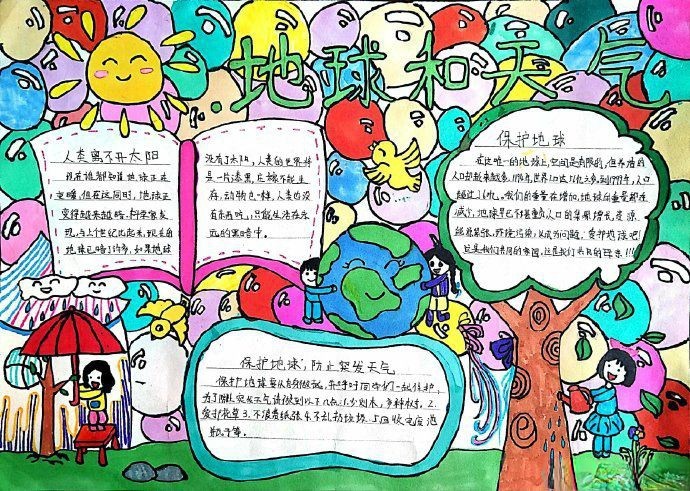 地球和天气
人类离不开太阳
现在谁都知道地球正在
变暖,但在这同时,地球正
变得越来越暗,科学家发
现,与上个世纪比起来,现在的
地球已暗了许多,如果地球
没有了太阳,人类的世界将
是一片漆黑,庄稼不能生
存,动物也一样,人类也没
有东西吃,只能生活在永
远的黑暗中。
保护地球
在这唯一的地球上,空间是有限的,但养活的
人口却越来越多
超过了 我们的重量在增加,地球的重量却在
减少,地球早已不堪重负,人口的暴涨增长,资源
能源紧张,环境污染,已成为问题,爱护地球吧!
这是我们共同的家园,这是我们共有的
保护地球,防止突发天气
保护地球要从自身做起,并呼吁同伴们一起保护,
为了防止突发天气请做到以下几点:1.少划木,多种树,2.
爱护花草3.不浪费纸张4.不乱扔垃圾.5.回收电废池
瓶子等。